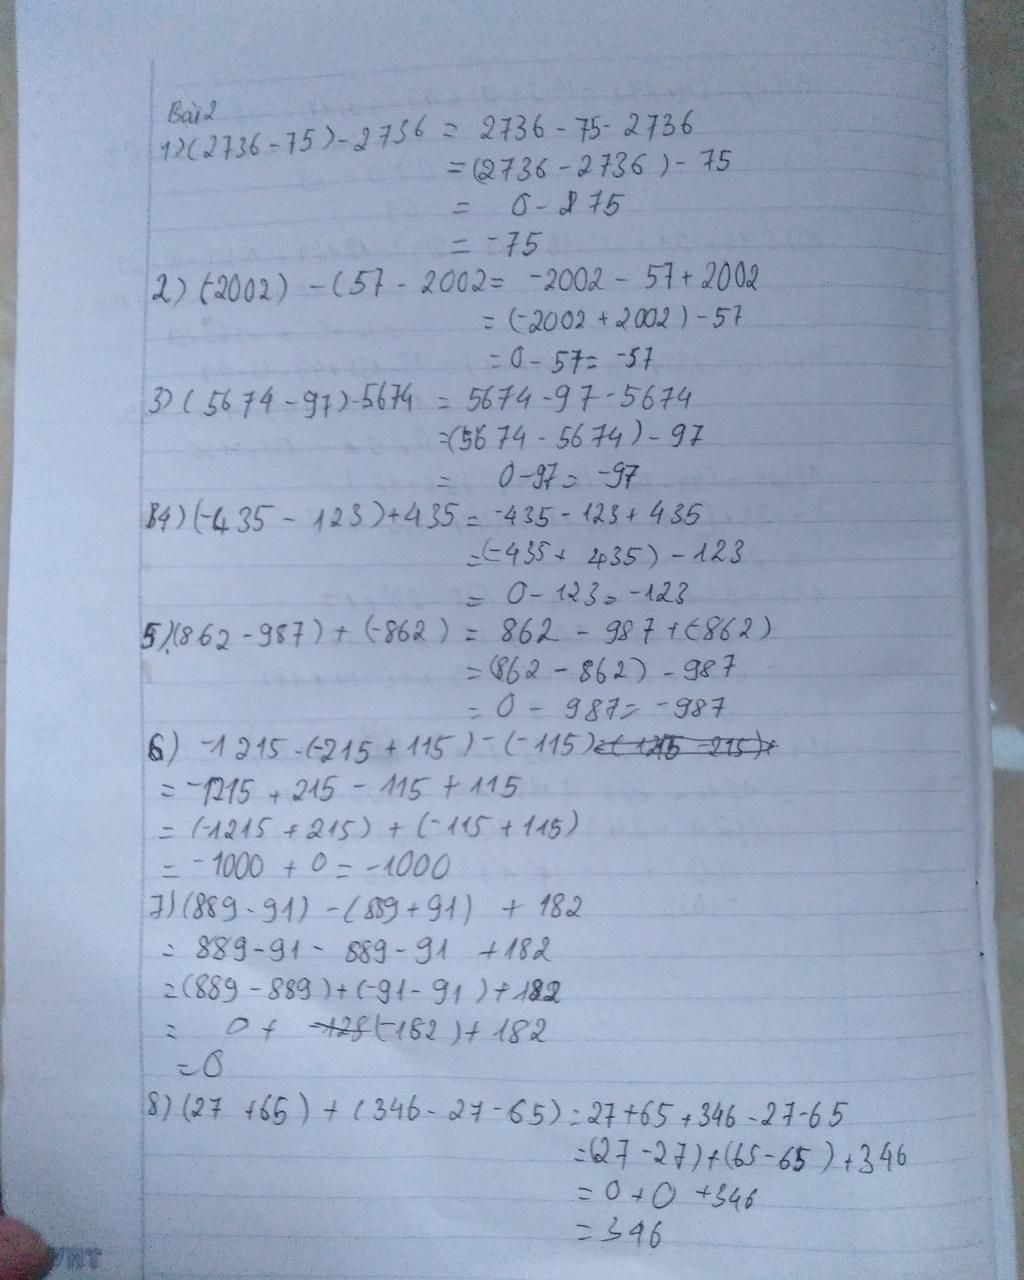 Bài 2
1) (2736 - 75) - 2736 = 2736 - 75 - 2736
= (2736 - 2736) - 75
= 0 - 75
= -75
2) (-2002) - (57 - 2002 = -2002 - 57 + 2002
= (-2002 + 2002) - 57
= 0 - 57 = -57
3) (5674 - 97) - 5674 = 5674 - 97 - 5674
= (5674 - 5674) - 97
= 0 - 97 = -97
4) (-435 - 123) + 435 = -435 - 123 + 435
= (-435 + 435) - 123
= 0 - 123 = -123
5) (862 - 987) + (-862) = 862 - 987 + (-862)
= (862 - 862) - 987
= 0 - 987 = -987
6) -1215 - (-215 + 115) - (-115)
= -1215 + 215 - 115 + 115
= (-1215 + 215) + (-115 + 115)
= -1000 + 0 = -1000
7) (889 - 91) - (889 + 91) + 182
= 889 - 91 - 889 - 91 + 182
= (889 - 889) + (-91 - 91) + 182
= 0 + (-182) + 182
= 0
8) (27 + 65) + (346 - 27 - 65) = 27 + 65 + 346 - 27 - 65
= (27 - 27) + (65 - 65) + 346
= 0 + 0 + 346
= 346